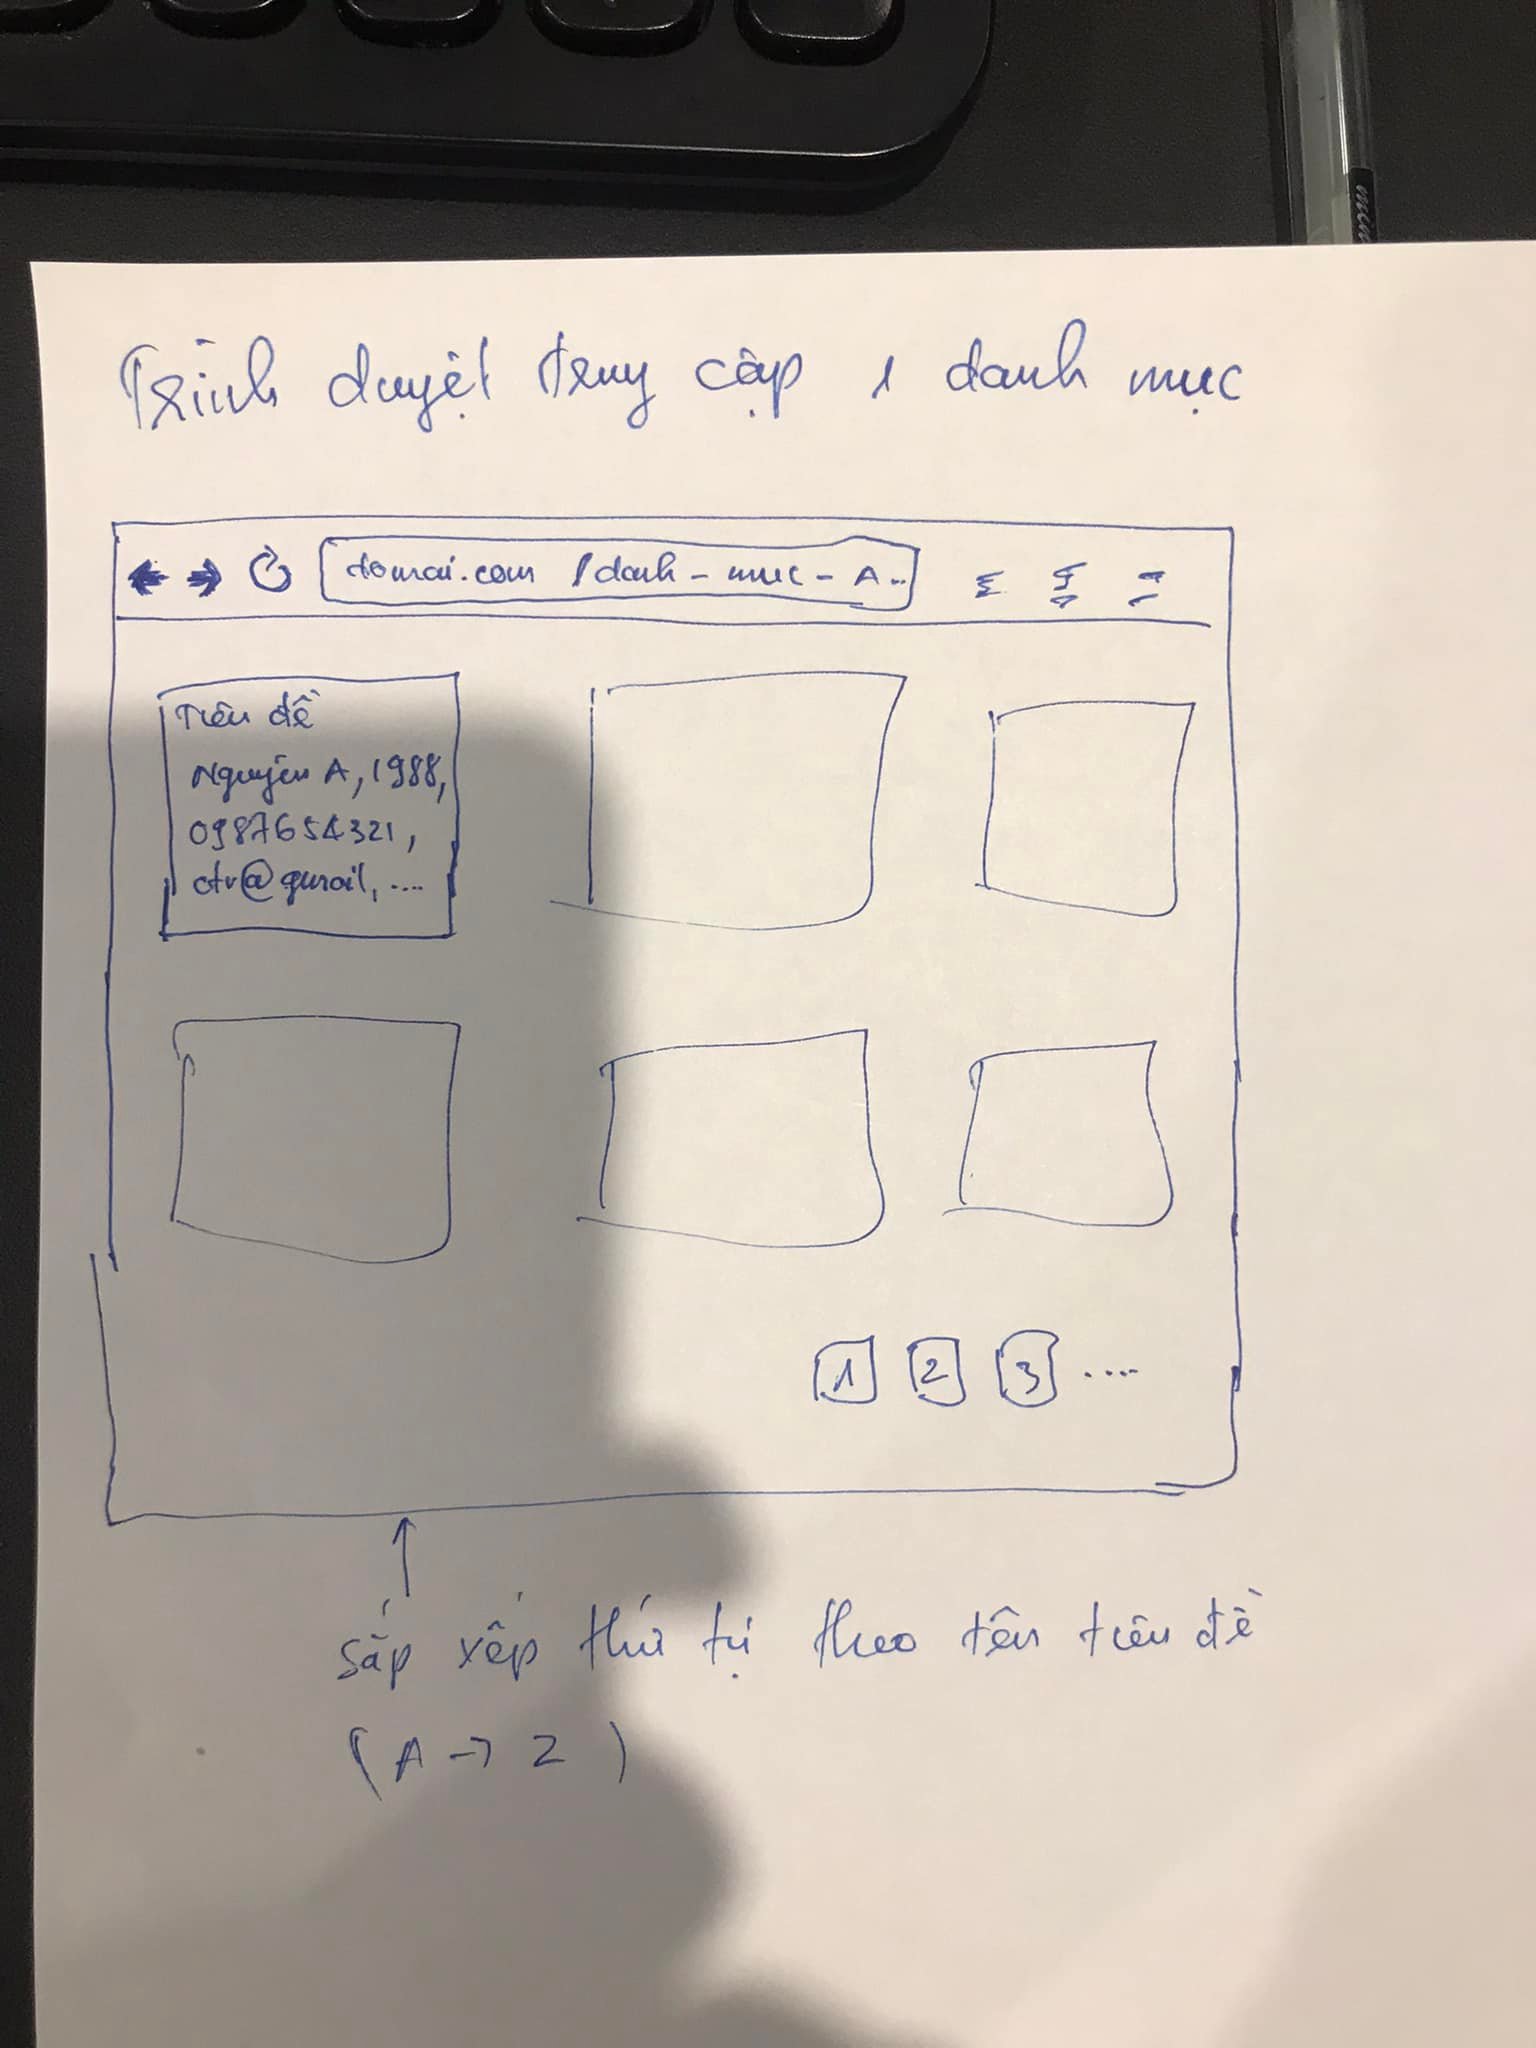 Trình duyệt truy cập 1 danh mục
domai.com /danh-muc-A..
Tiêu đề
Nguyễn A, 1988,
0987654321,
ctv@gmail, ....
1 2 3 ....
sắp xếp thứ tự theo tên tiêu đề
(A → Z)